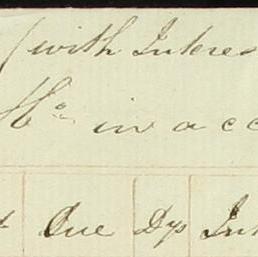 (with Interes
in acc
Due Dys Int